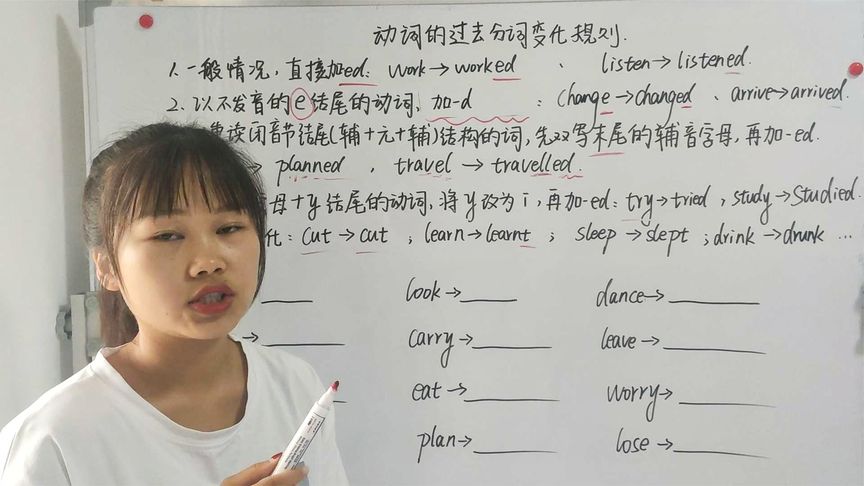 动词的过去分词变化规则.
1.一般情况,直接加ed: work→worked 、 listen→listened.
2.以不发音的e结尾的动词,加-d : change→changed 、arrive→arrived.
重读闭音节结尾(辅+元+辅)结构的词,先双写末尾的辅音字母,再加-ed.
→ planned , travel → travelled.
母+y结尾的动词,将y改为i,再加-ed: try→tried , study→studied.
化: cut→cut ; learn→learnt ; sleep→slept ; drink→drunk ...
look→____ dance→____
→____ carry→____ leave→____
eat→____ worry→____
plan→____ lose→____